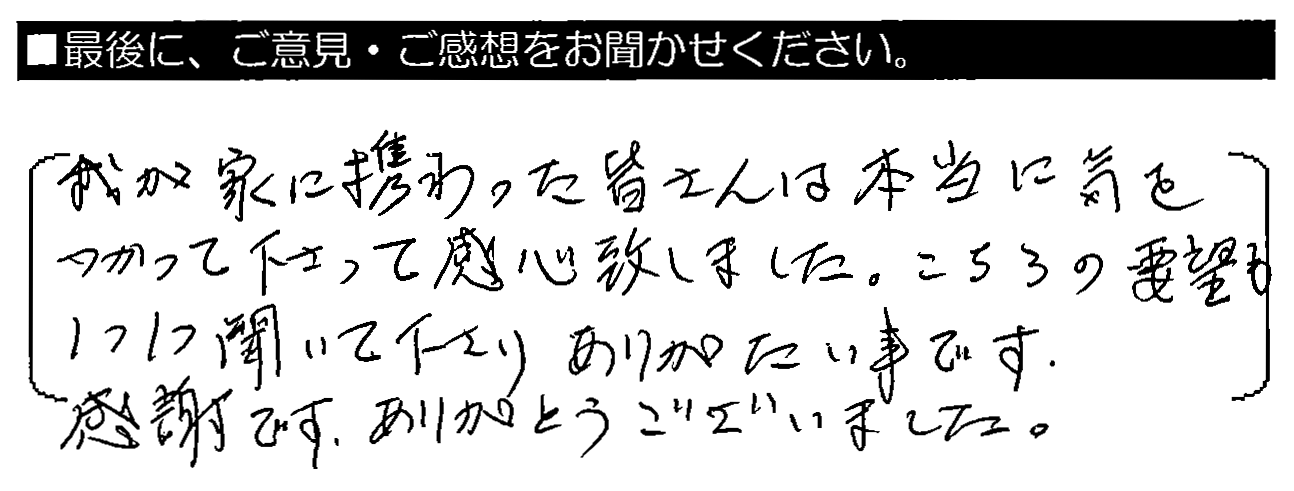 ■最後に、ご意見・ご感想をお聞かせください。
我が家に携わった皆さんは本当に気を
つかって下さって感心致しました。こちらの要望も
1つ1つ聞いて下さり ありがたい事です.
感謝です. ありがとうございました。